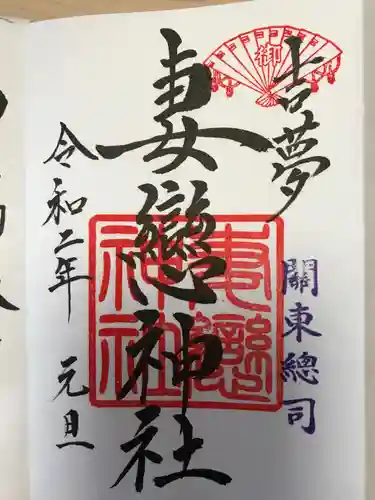 御
吉夢
關東總司
妻戀神社
妻戀
神社
令和二年 元旦